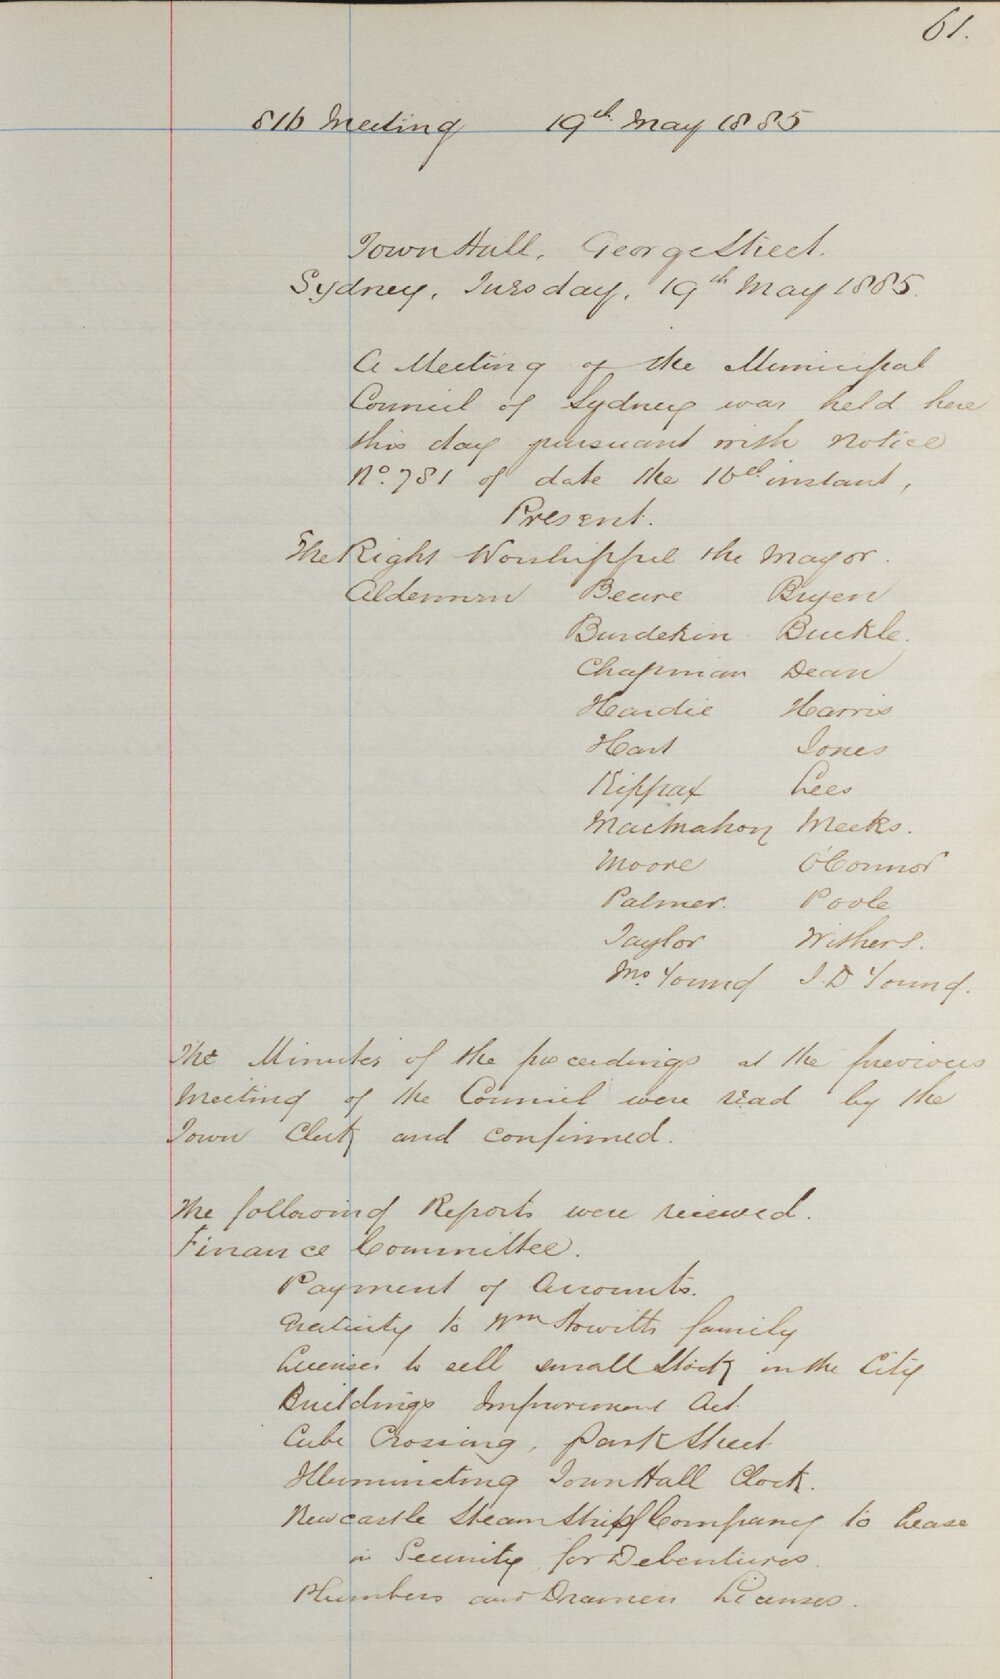 61.
816 Meeting 19th May 1885
Town Hall, George Street.
Sydney, Tuesday, 19th May 1885.
A Meeting of the Municipal
Council of Sydney was held here
this day pursuant with Notice
No. 781 of date the 16th instant,
Present.
The Right Worshipful the Mayor.
Aldermen Beare Bryen
Burdekin Buckle.
Chapman Dean
Hardie Harris
Hart Jones
Kippax Lees
MacMahon Meeks.
Moore O'Connor
Palmer. Poole
Taylor Withers.
Young J. D Young.
The Minutes of the proceedings at the previous
Meeting of the Council were read by the
Town Clerk and confirmed.
The following Reports were received.
Finance Committee.
Payment of Accounts.
Gratuity to Wm Howith family
Licenses to sell small Stock in the City
Buildings Improvement Act
Cube Crossing, Park Street
Illuminating Town Hall Clock.
Newcastle Steam Ship Company to Lease
in Security for Debentures.
Plumbers and Draymen Licenses.